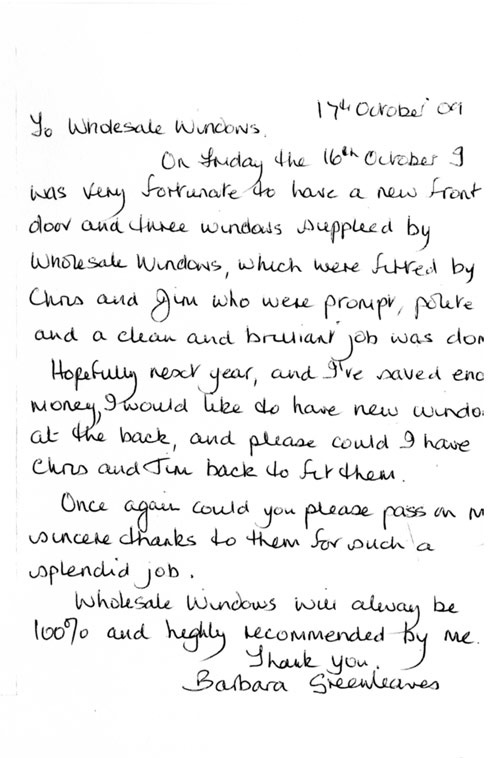 17th October 09
To Wholesale Windows.
On Friday the 16th October I
was very fortunate to have a new front
door and three windows supplied by
Wholesale Windows, which were fitted by
Chris and Jim who were prompt, polite
and a clean and brilliant job was don
Hopefully next year, and I've saved eno
money, I would like to have new windo
at the back, and please could I have
Chris and Jim back to fit them.
Once again could you please pass on m
sincere thanks to them for such a
splendid job.
Wholesale Windows will alway be
100% and highly recommended by me.
Thank you.
Barbara Greenleaves